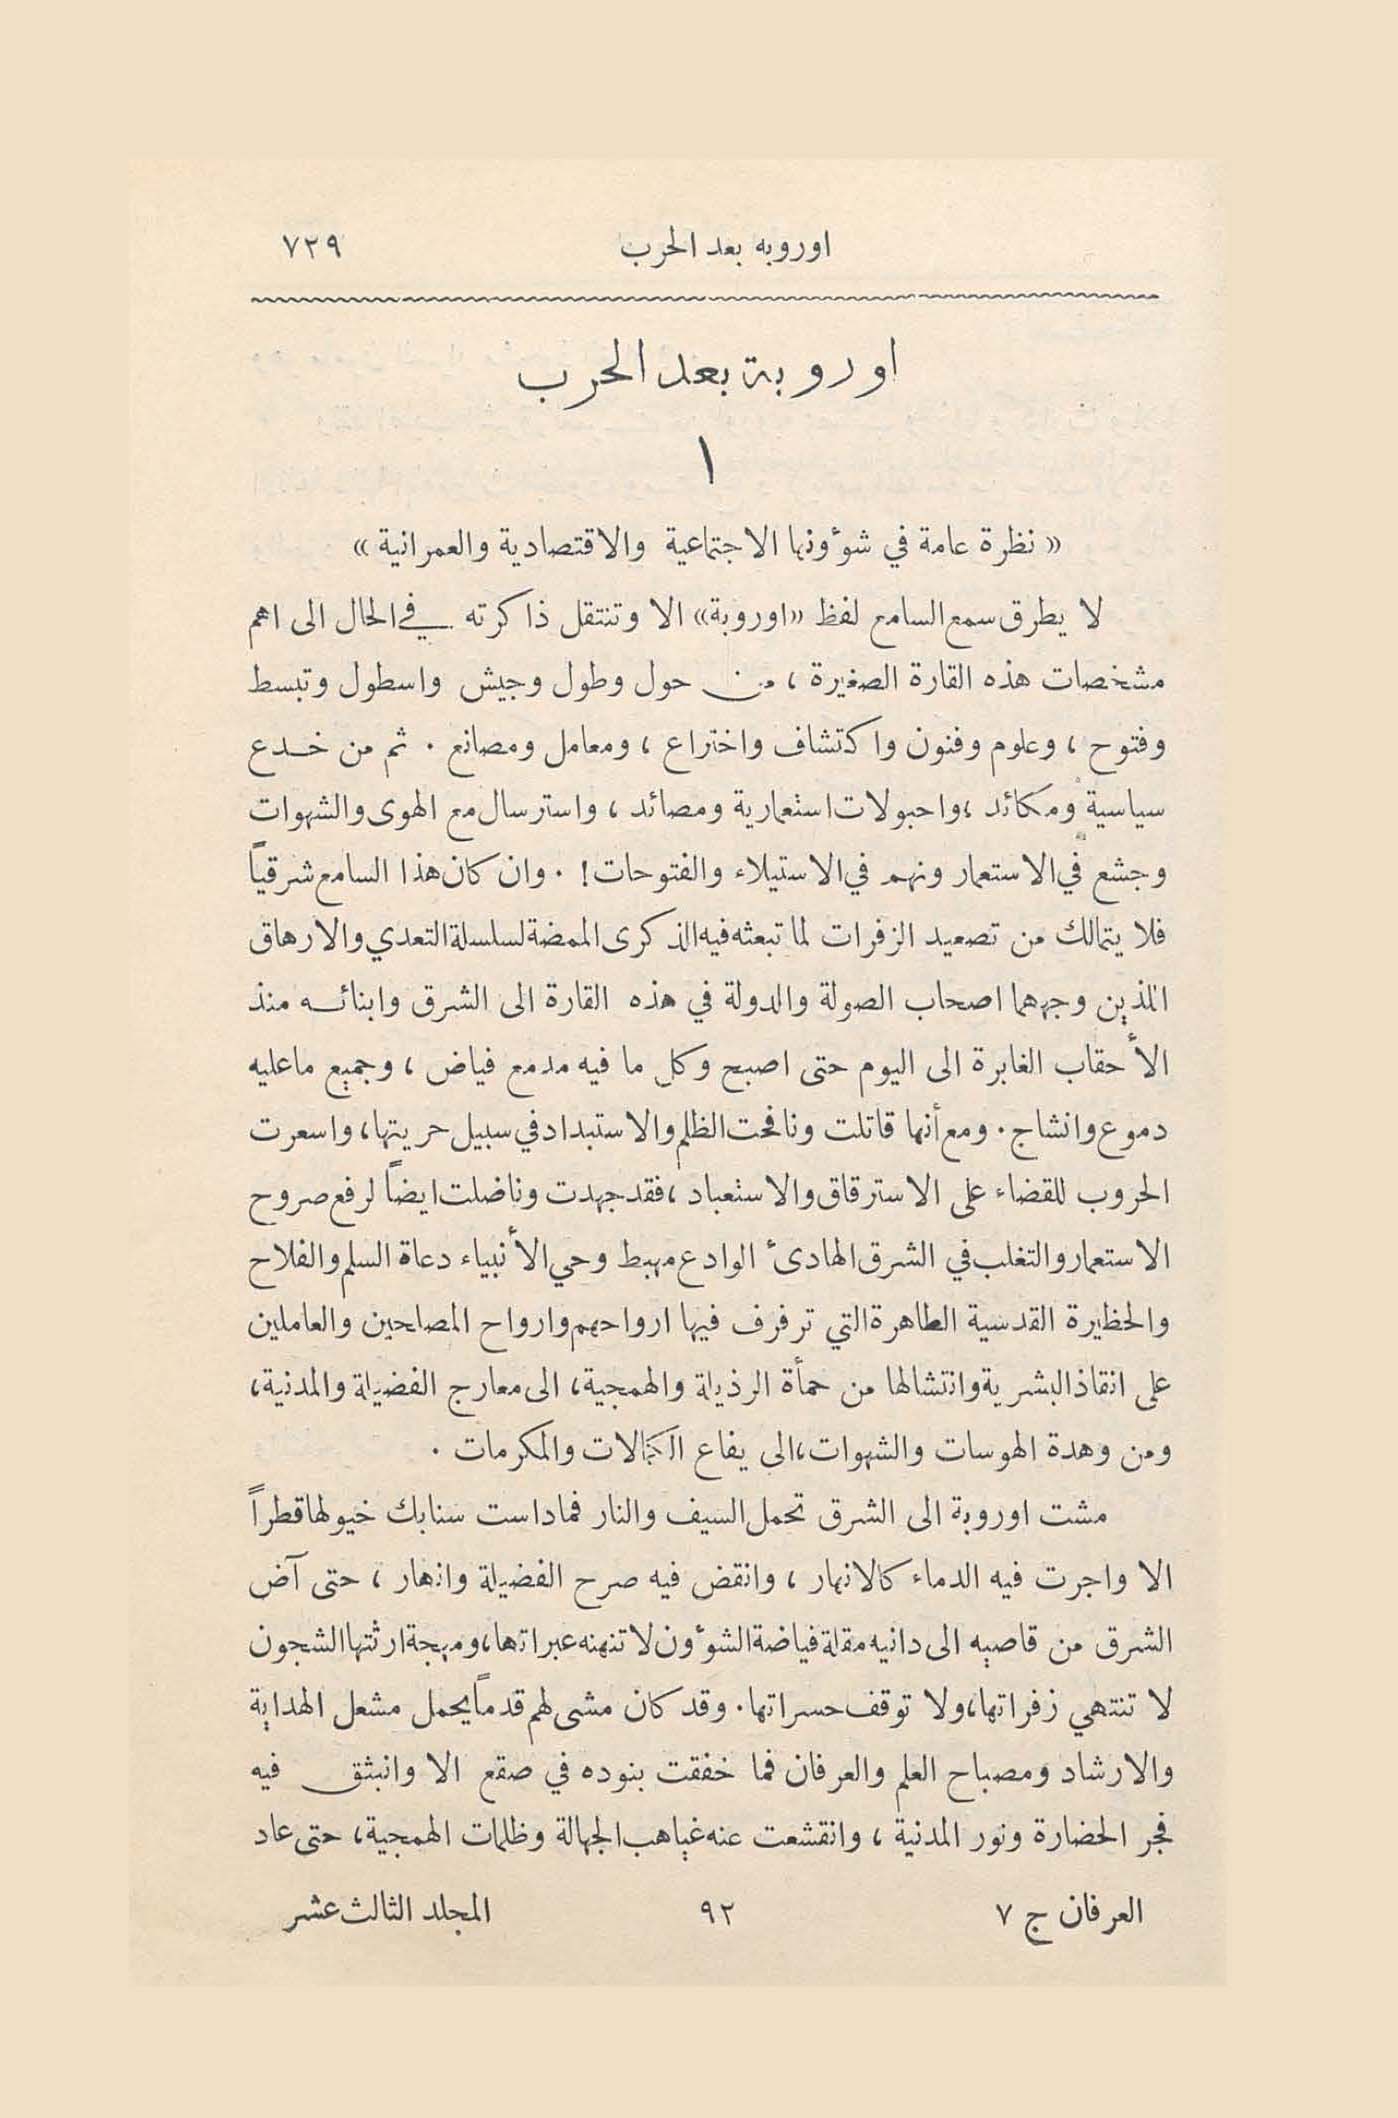 اوروبه بعد الحرب ٧٢٩
اوروبة بعد الحرب
١
« نظرة عامة في شؤونها الاجتماعية والاقتصادية والعمرانية »
لا يطرق سمع السامع لفظ «اوروبة» الا وتنتقل ذاكرته في الحال الى اهم
مشخصات هذه القارة الصغيرة ، من حول وطول وجيش واسطول وتبسط
وفتوح ، وعلوم وفنون واكتشاف واختراع ، ومعامل ومصانع . ثم من خدع
سياسية ومكائد ،واحبولات استعمارية ومصائد ، واسترسال مع الهوى والشهوات
وجشع في الاستعمار ونهم في الاستيلاء والفتوحات! . وان كان هذا السامع شرقياً
فلا يتمالك من تصعيد الزفرات لما تبعثه فيه الذكرى الممضة لسلسلة التعدي والارهاق
اللذين وجههما اصحاب الصولة والدولة في هذه القارة الى الشرق وابنائه منذ
الأحقاب الغابرة الى اليوم حتى اصبح وكل ما فيه مدمع فياض ، وجميع ماعليه
دموع وانشاج . ومع أنها قاتلت ونافحت الظلم والاستبداد في سبيل حريتها، واسعرت
الحروب للقضاء على الاسترقاق والاستعباد ،فقد جهدت وناضلت ايضاً لرفع صروح
الاستعمار والتغلب في الشرق الهادئ الوادع مهبط وحي الأنبياء دعاة السلم والفلاح
والحظيرة القدسية الطاهرة التي ترفرف فيها ارواحهم وارواح المصلحين والعاملين
على انقاذ البشرية وانتشالها من حمأة الرذيلة والهمجية، الى معارج الفضيلة والمدنية،
ومن وهدة الهوسات والشهوات ،الى يفاع الكمالات والمكرمات .
مشت اوروبة الى الشرق تحمل السيف والنار فما داست سنابك خيولها قطراً
الا واجرت فيه الدماء كالانهار ، وانقض فيه صرح الفضيلة وانهار ، حتى آض
الشرق من قاصيه الى دانيه مقلة فياضة الشؤون لا تنهنه عبراتها،ومهجة ارثتها الشجون
لا تنتهي زفراتها،ولا توقف حسراتها. وقد كان مشى لهم قدماً يحمل مشعل الهداية
والارشاد ومصباح العلم والعرفان فما خفقت بنوده في صقع الا وانبثق فيه
فجر الحضارة ونور المدنية ، وانقشعت عنه غياهب الجهالة وظلمات الهمجية، حتى عاد
العرفان ج ٧ ٩٢ المجلد الثالث عشر